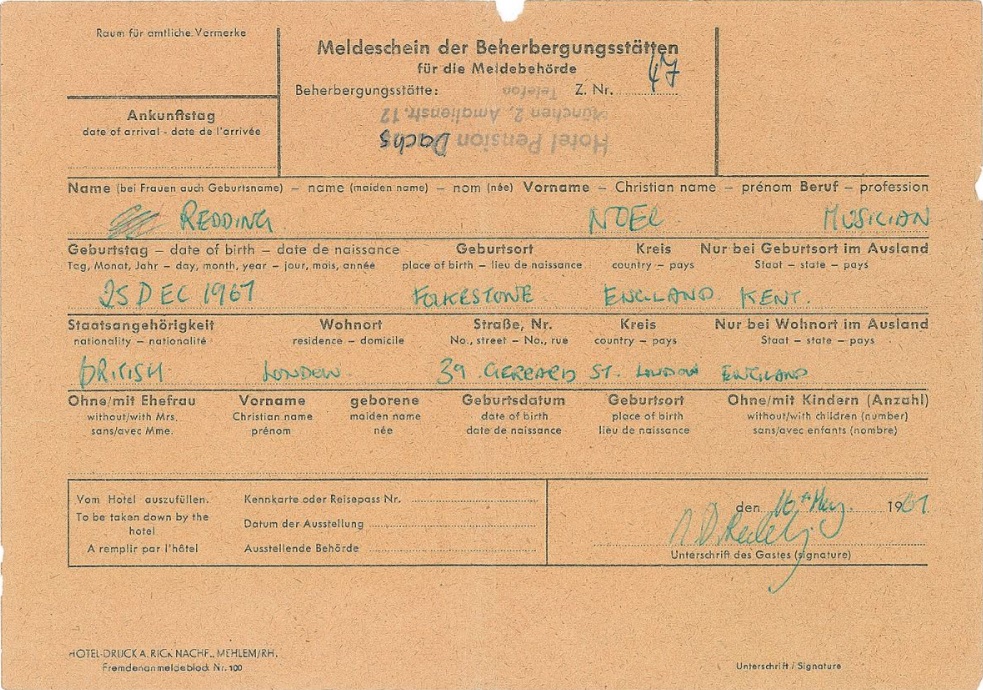 Raum für amtliche Vermerke
Meldeschein der Beherbergungsstätten
für die Meldebehörde
Beherbergungsstätte: Z. Nr. 47
Telefon
München 2, Amalienstr. 12
Hotel Pension Dachs
Ankunftstag
date of arrival - date de l'arrivée
Name (bei Frauen auch Geburtsname) – name (maiden name) – nom (née) Vorname – Christian name – prénom Beruf – profession
REDDING NOEL MUSICIAN
Geburtstag – date of birth – date de naissance Geburtsort Kreis Nur bei Geburtsort im Ausland
Tag, Monat, Jahr – day, month, year – jour, mois, année place of birth – lieu de naissance country – pays Staat – state – pays
25 DEC 1967 FOLKESTONE ENGLAND. KENT.
Staatsangehörigkeit Wohnort Straße, Nr. Kreis Nur bei Wohnort im Ausland
nationality – nationalité residence – domicile No., street – No., rue country – pays Staat – state – pays
BRITISH LONDON. 39 GERRARD ST. LONDON ENGLAND
Ohne/mit Ehefrau Vorname geborene Geburtsdatum Geburtsort Ohne/mit Kindern (Anzahl)
without/with Mrs. Christian name maiden name date of birth place of birth without/with children (number)
sans/avec Mme. prénom née date de naissance lieu de naissance sans/avec enfants (nombre)
Vom Hotel auszufüllen. Kennkarte oder Reisepass Nr.
To be taken down by the hotel Datum der Ausstellung
A remplir par l'hôtel Ausstellende Behörde
den 16th May. 1967
N D Redding
Unterschrift des Gastes (signature)
HOTEL-DRUCK A. RICK NACHF., MEHLEM/RH.
Fremdenanmeldeblock Nr. 100
Unterschrift / Signature